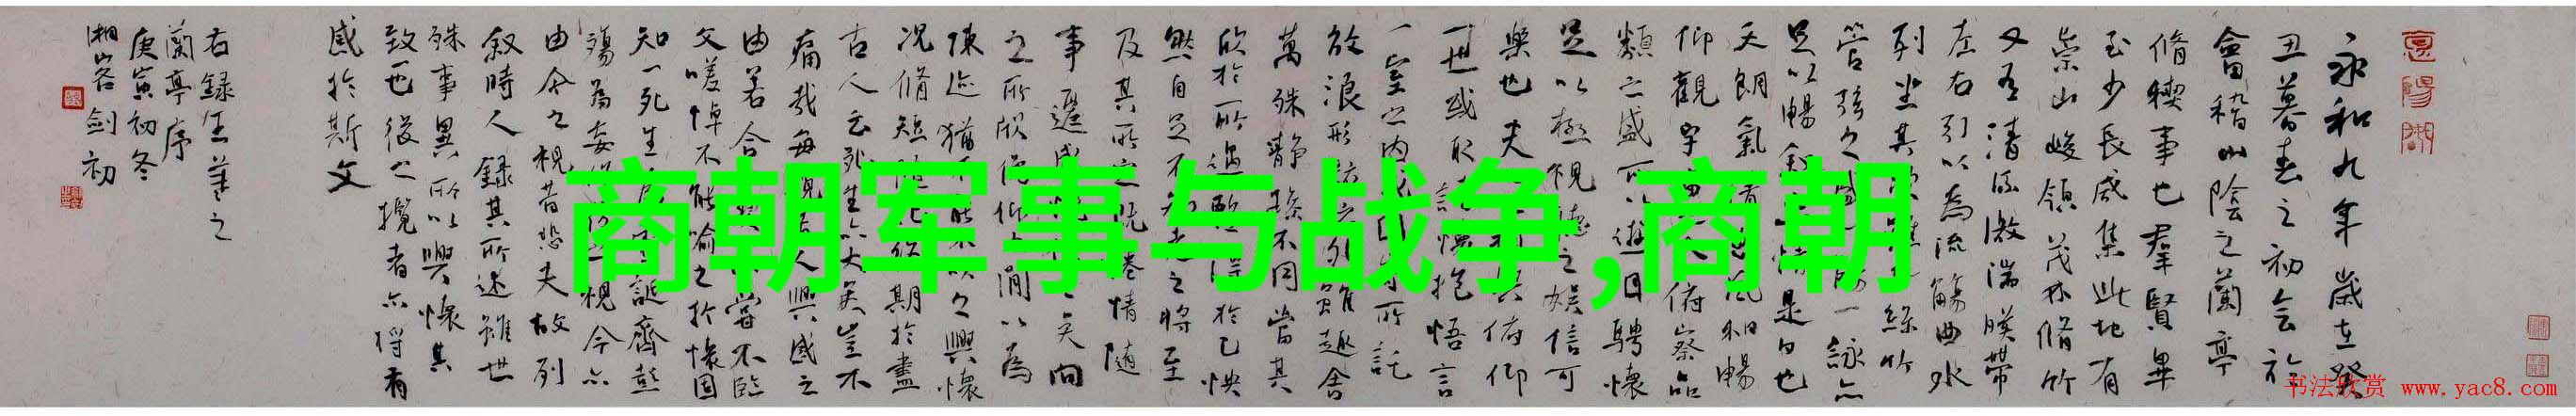 永和九年歲在癸
丑暮春之初會於
會稽山陰之蘭亭
脩稧事也羣賢畢
至少長咸集此地有
崇山峻領茂林脩竹
又有清流激湍暎帶
左右引以為流觴曲水
列坐其
管弦之盛一詠亦
足以暢叙是日也
天朗氣風和暢
仰觀宇俯察品
類之盛可以遊目騁懷
足以極視聽之娛信可
樂也夫俯仰
一世或取抱悟言
一室之内所託
放浪形趣舍
萬殊靜躁不同當其
欣於所遇於己快
然自足不知老之將至
及其所之既惓情隨
事遷矣向
之所欣俛仰之閒以為
陳迹猶不能不以之興懷
况脩短期於盡
古人云死生亦大矣豈不
痛哉每興感之
由若合當不臨
文嗟悼不能喻之於懷固
知一死生誕齊彭
殤為妄視今亦
由今之視昔悲夫故列
叙時人錄其所述雖世
殊事異所以興懷其
致一也後之攬者亦將有
感於斯文
右錄王羲之
蘭亭序
庚寅初冬
湘客劍初
商朝军事与战争,商朝
书法欣赏 www.yac8.com